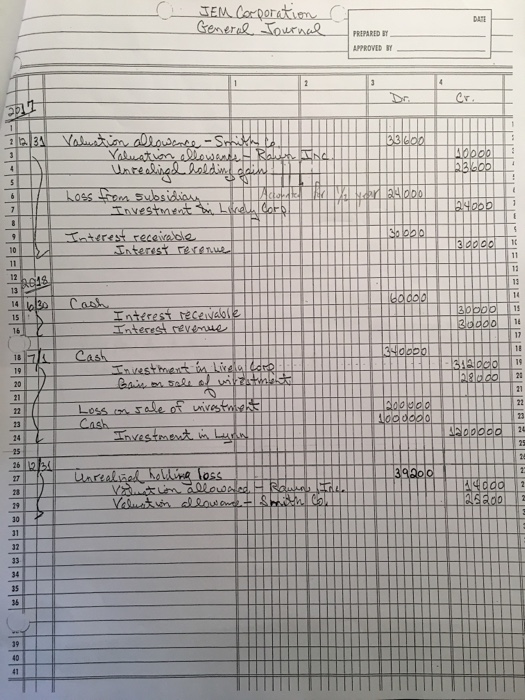 JEM Corporation
General Journal
DATE
PREPARED BY
APPROVED BY
1 2 3 4
Dr. Cr.
2017
1
2 12/31 Valuation allowance - Smith Co. 33600
3 Valuation allowance - Rawn Inc. 10000
4 Unrealized holding gain 23600
5
6 Loss from subsidiary Accounted for 1/2 year 24000
7 Investment in Lively Corp 24000
8
9 Interest receivable 30000
10 Interest revenue 30000
11
12
2018
13
14 6/30 Cash 60000
15 Interest receivable 30000
16 Interest revenue 30000
18 7/1 Cash 340000
19 Investment in Lively Corp 312000
20 Gain on sale of investment 28000
21
22 Loss on sale of investment 200000
23 Cash 1000000
24 Investment in Lynn 1200000
25
26 12/31
27 Unrealized holding loss 39200
28 Valuation allowance - Rawn, Inc. 14000
29 Valuation allowance - Smith Co. 25200
30
31
32
33
34
35
36
39
40
41